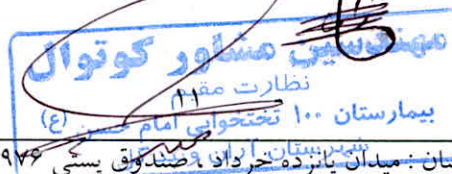 مهندسین مشاور کوتوال
نظارت مقیم
۱۱
بیمارستان ۱۰۰ تختخوابی امام حسن (ع)
شهرستان آران و
سان : میدان پانزده خرداد ، صندوق پستی ۹۷۶